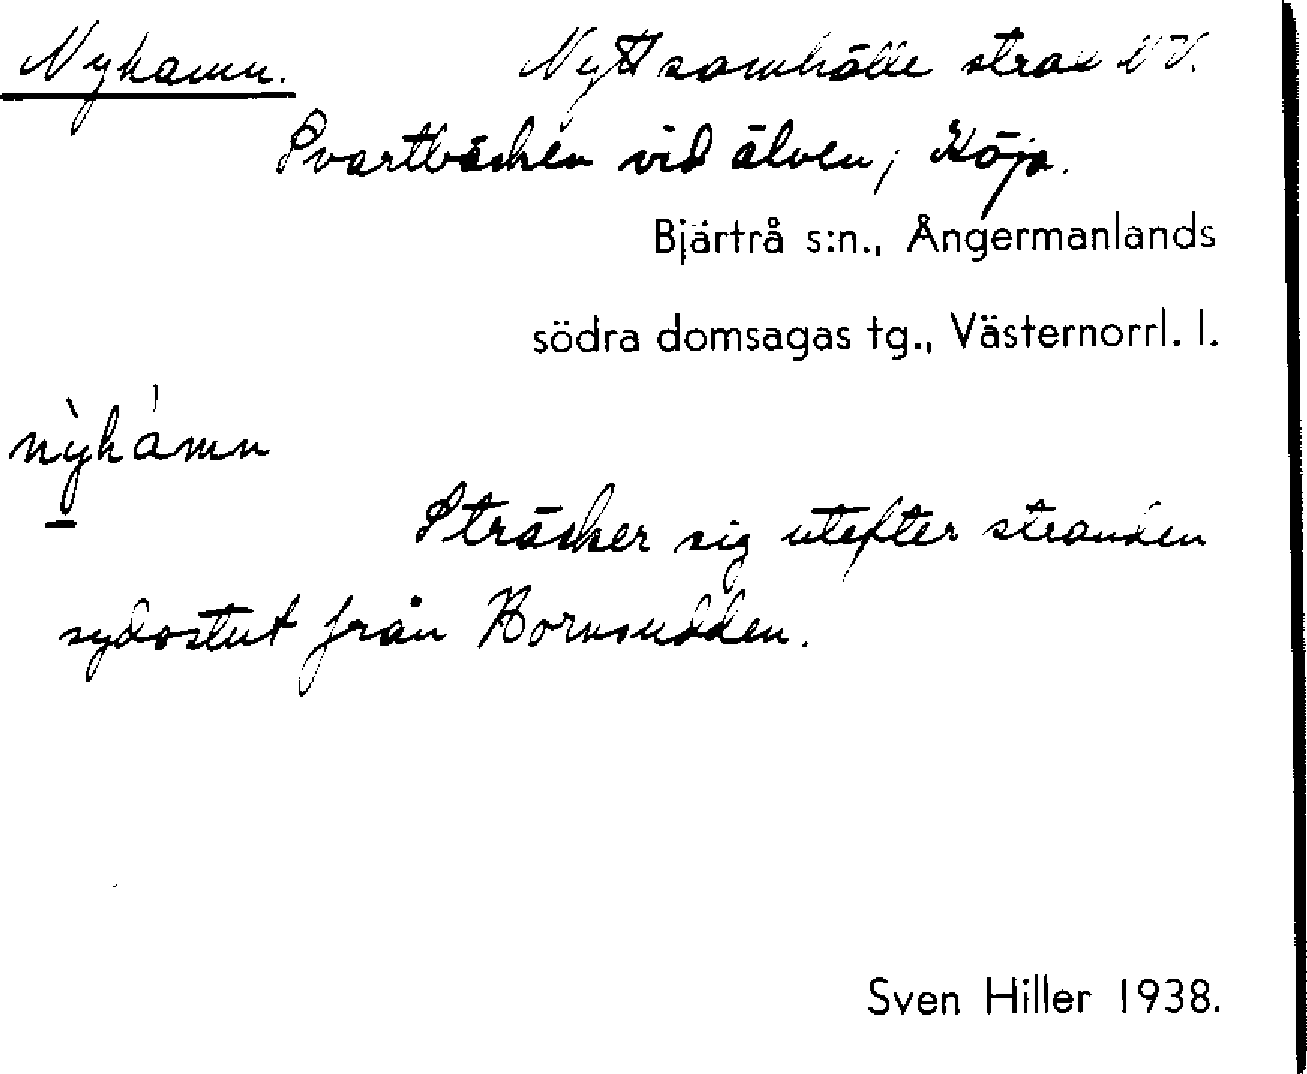 Nyhamn. Nytt samhälle strax NV.
Svartbäcken vid älven, Höja.
Bjärtrå s:n., Ångermanlands
södra domsagas tg., Västernorrl. l.
nỳhámn
Sträcker sig utefter stranden
sydostut från Bornsudden.
Sven Hiller 1938.